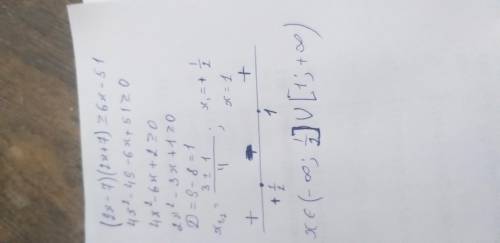 (2x-7)(2x+7) ≥ 6x-51
4x²-49-6x+51 ≥ 0
4x²-6x+2 ≥ 0
2x²-3x+1 ≥ 0
D = 9-8 = 1
x₁,₂ = (3±1)/4 ; x₁ = +1/2
x = 1
+ - +
+1/2 1
x ∈ (-∞; 1/2] ∪ [1; +∞)